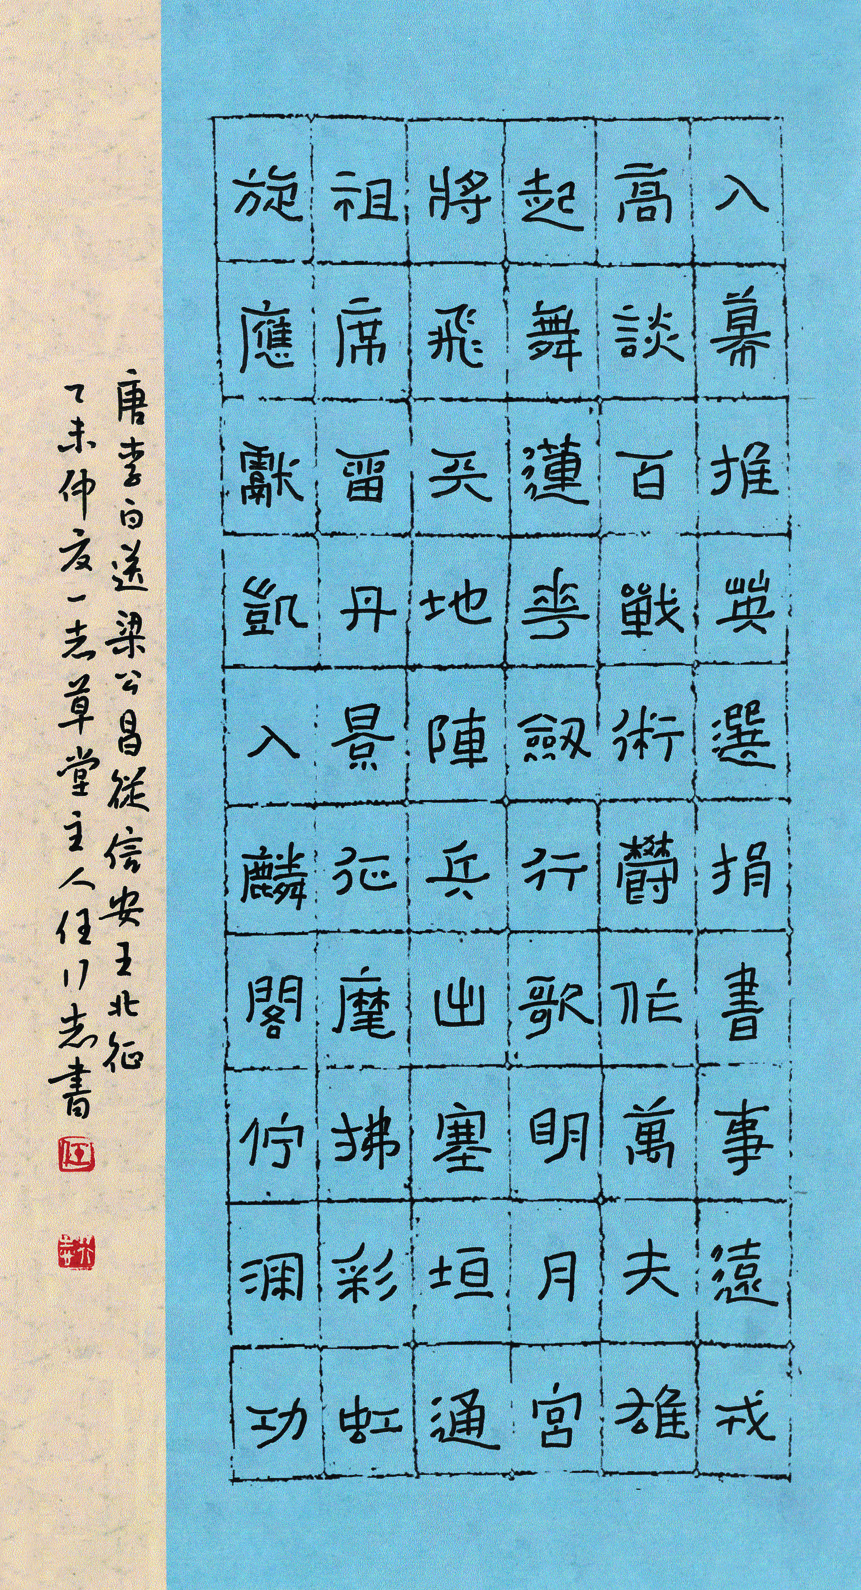 入幕推英選捐書事遠戎
高談百戰術鬱作萬夫雄
起舞蓮華劔行歌明月宮
將飛天地陣兵出塞垣通
祖席留丹景征麾拂彩虹
旋應獻凱入麟閣佇功
唐李白送梁公昌從信安王北征
乙未仲夏一志草堂主人任行志書
任